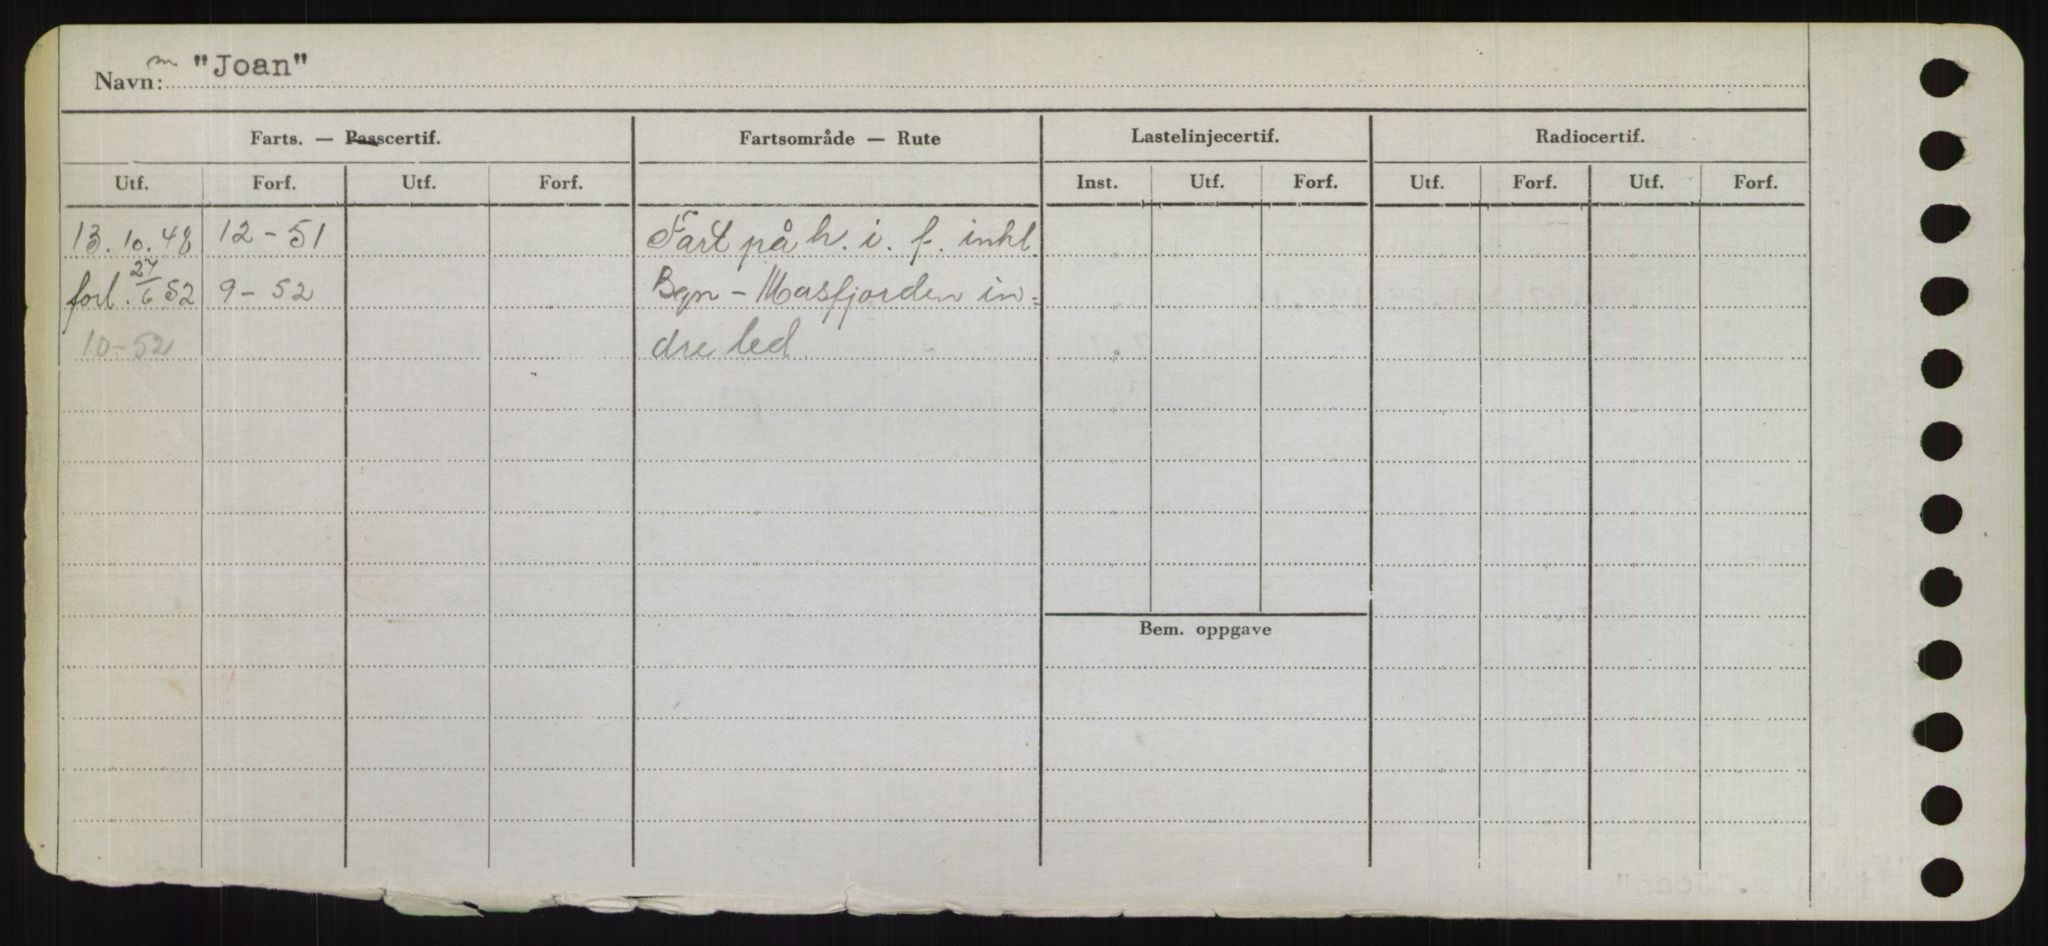 Navn: m "Joan"
Farts. — Passcertif. Fartsområde — Rute Lastelinjecertif. Radiocertif.
Utf. Forf. Utf. Forf. Inst. Utf. Forf. Utf. Forf. Utf. Forf.
13.10.48 12-51 Fart på h. i. f. inkl.
forl. 24/6 52 9-52 Bgn - Masfjorden in=
10-52 dre led
Bem. oppgave